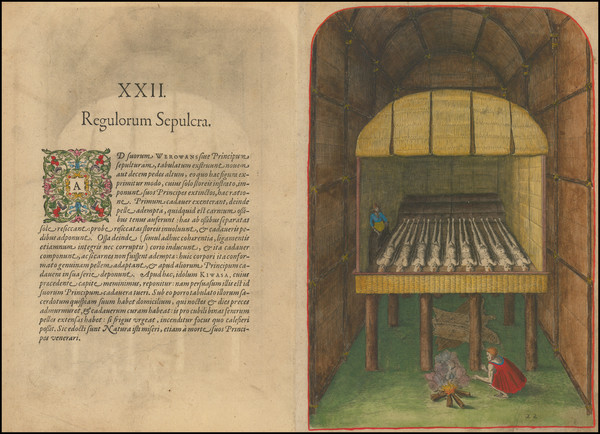 XXII.
Regulorum Sepulcra.
AD suorum WEROWANS siue Principum
sepulturam, tabulatum exstruunt nouem
aut decem pedes altum, eo quo hac figura ex-
primitur modo, cuius solo storeis instrato, im-
ponunt suos Principes extinctos, hac ratio-
ne. Primum cadauer exenterant, deinde
pelle adempta, quidquid est carnium ossi-
bus tenus auferunt: has ab ossibus separatas
sole resiccant, probe resiccatas storeis inuoluunt, & cadaueris pe-
dibus adponunt. Ossa deinde (simul adhuc cohærentia, ligamentis
etiamnum integris nec corruptis) corio induunt, & ita cadauer
componunt, ac si carnes non fuissent ademptæ: huic corpori ita confor-
mato genuinam pellem adaptant, & apud aliorum Principum ca-
dauera in sua serie deponunt. Apud has, idolum KIWASA, cuius
præcedente capite meminimus, reponitur: nam persuasum illis est id
suorum Principum cadauera tueri. Sub eo porro tabulato illorum sa-
cerdotum quispiam suum habet domicilium, qui noctes & dies preces
admurmurat, & cadauerum curam habeat: is pro cubili binas ferarum
pelles extensas habet: si frigus vrgeat, incenditur focus quo calefieri
possit. Sic edocti sunt Natura isti miseri, etiam à morte suos Princi-
pes venerari.